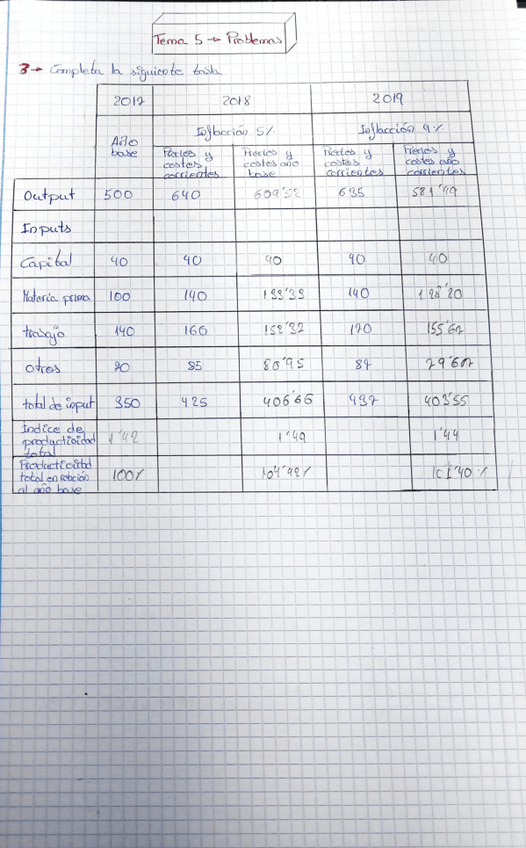 Tema 5 → Problemas
3→ Completa la siguiente tabla
2017 2018 2019
Año base Inflacción 5% Inflacción 4%
Precios y costes corrientes Precios y costes año base Precios y costes corrientes Precios y costes año corrientes
Output 500 640 609'52 635 581'49
Inputs
Capital 40 40 40 40 40
Materia prima 100 140 133'33 140 128'20
trabajo 140 160 152'32 170 155'67
otros 70 85 80'95 87 79'67
total de input 350 425 406'66 437 403'55
Índice de productividad total 1'42 1'49 1'44
Productividad total en relación al año base 100% 104'92% 101'40%